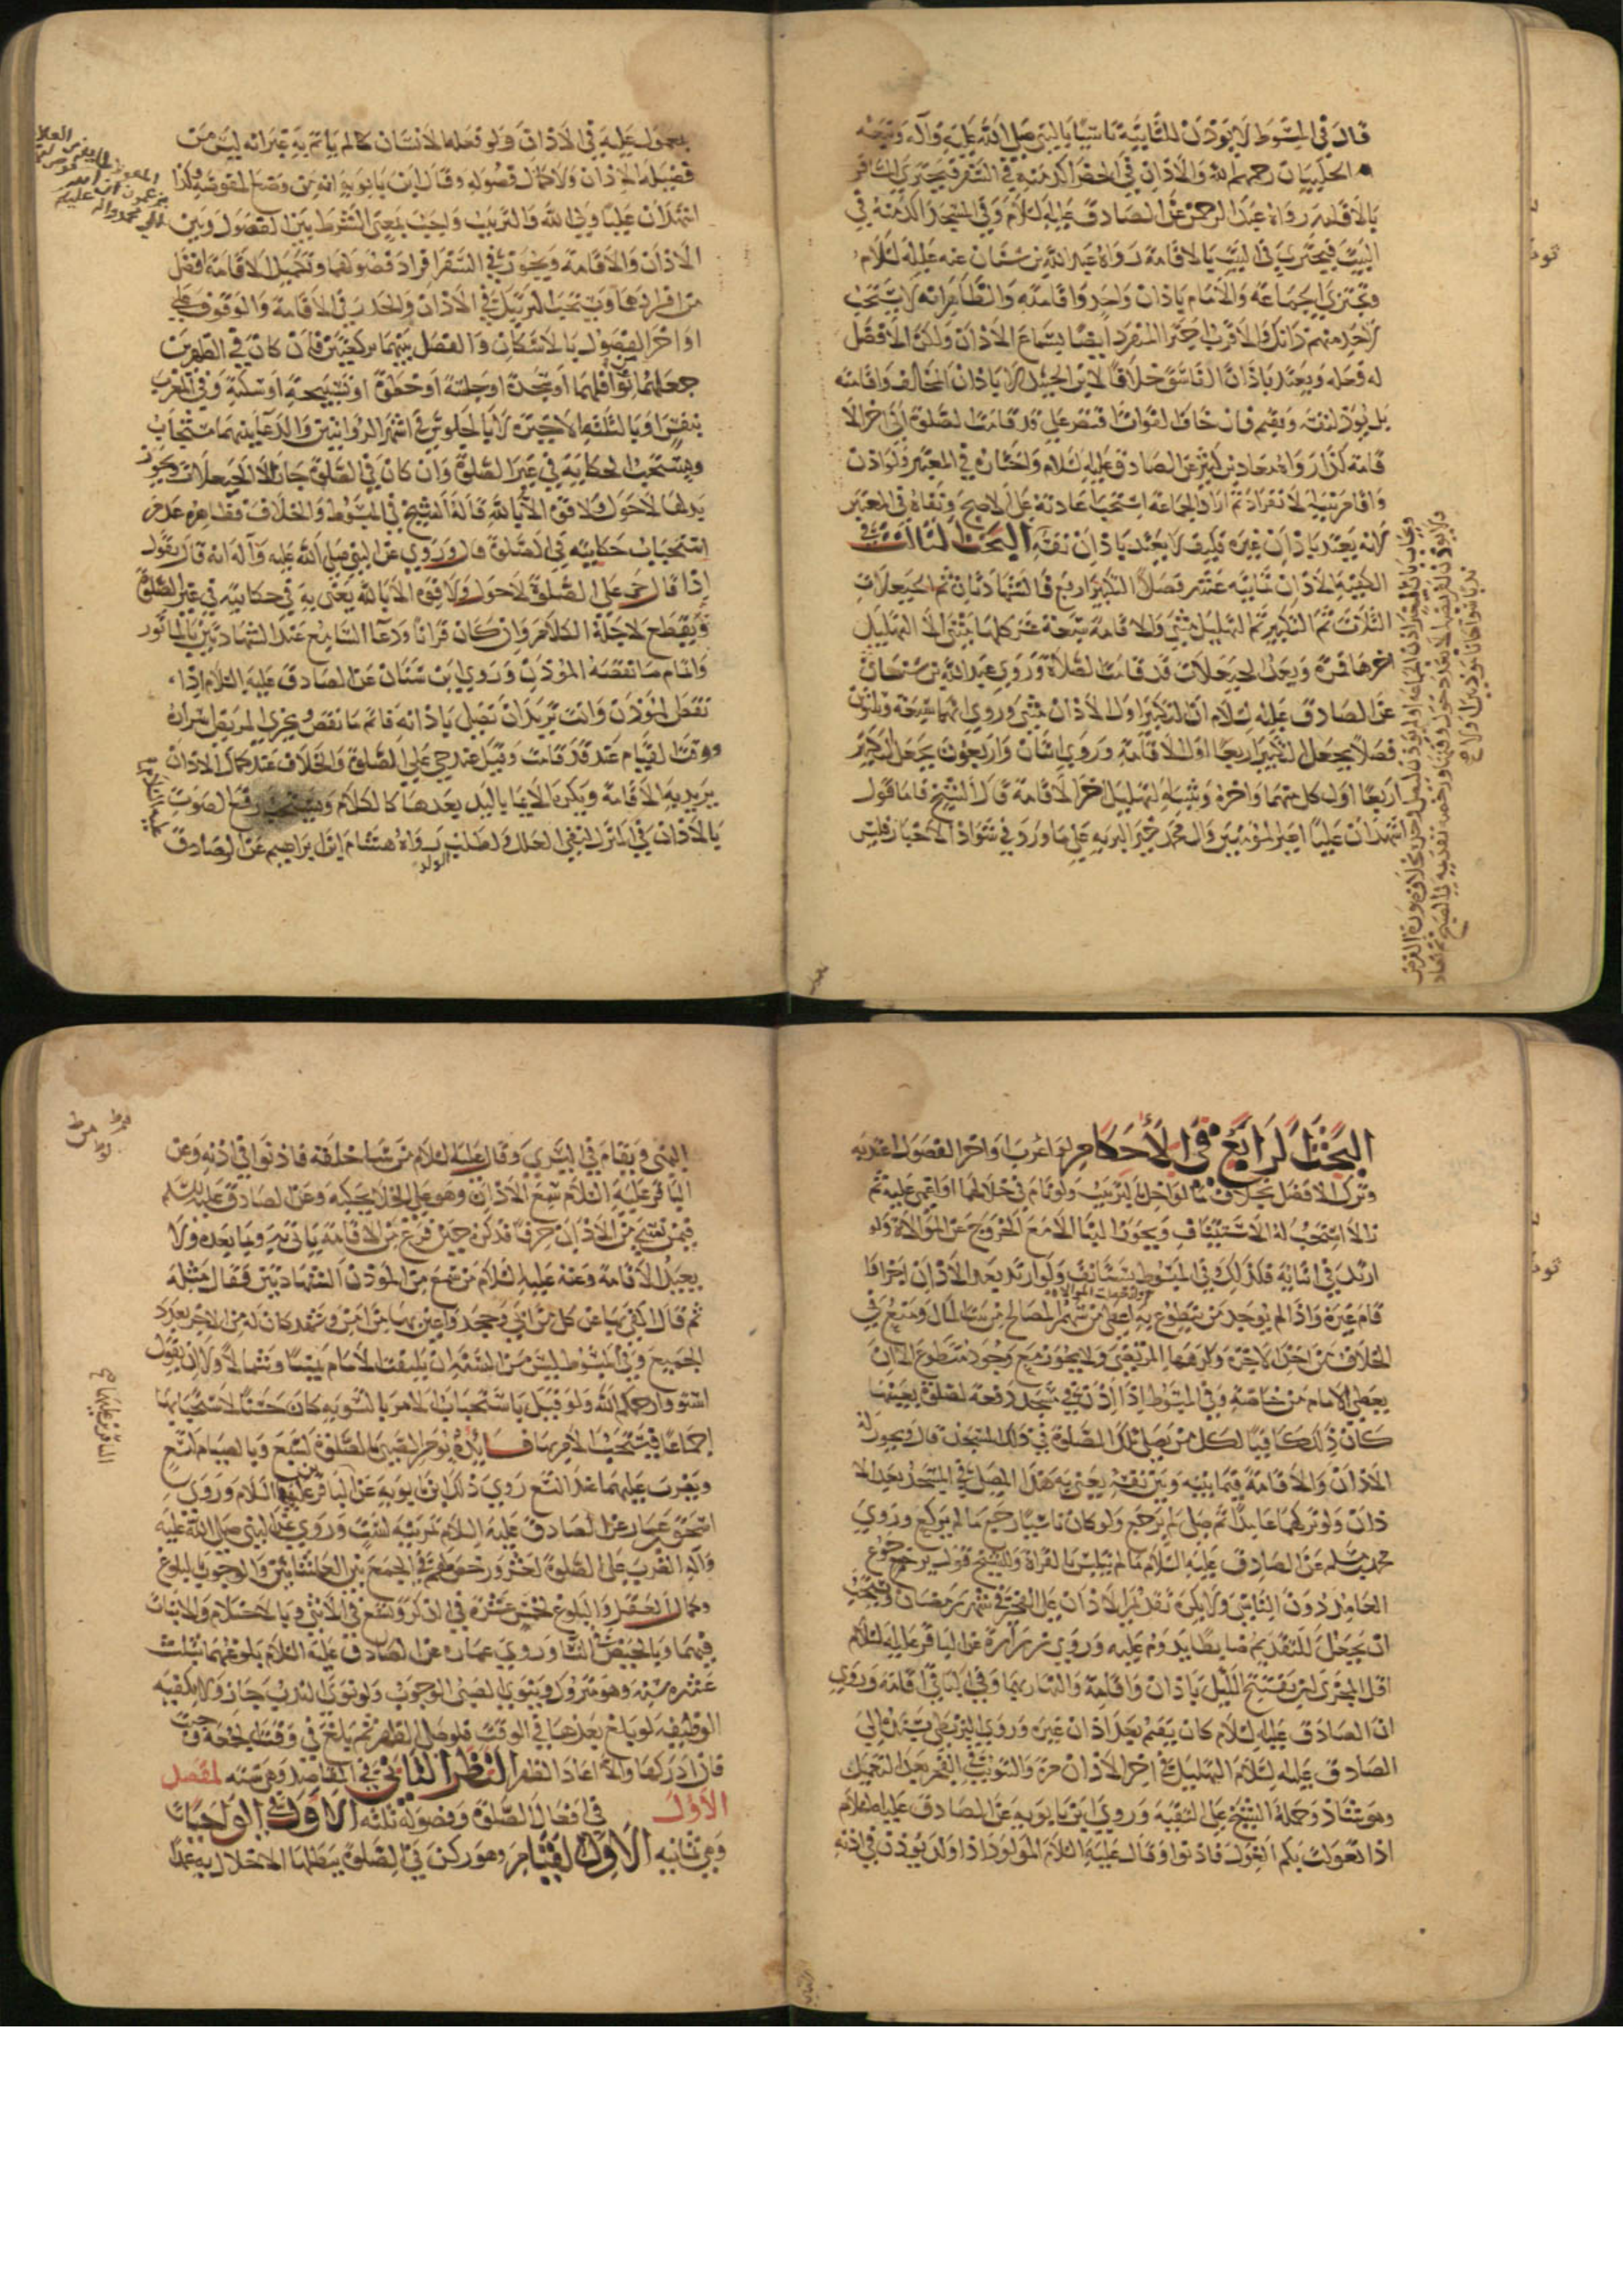 قال في المبسوط لا يؤذن للثانية تاسيا بالنبي صلى الله عليه وآله وتبعه
الحلبيان رحمهم الله والاذان في الحضر اكد منه في السفر فيجتزي المسافر
بالاقامة رواه عبد الرحمن عن الصادق عليه السلام وفي المسجد اكد منه في
البيت فيجتزي في البيت بالاقامة رواه عبد الله بن سنان عنه عليه السلام
وتجتزي الجماعة والامام باذان واحد واقامته والظاهر انه لا يستحب
لاحد منهم ذلك والاقرب اجتزا المنفرد ايضا بسماع الاذان ولكن الافضل
له فعله ويعتد باذان الفاسق خلافا لابن الجنيد لا باذان المخالف واقامته
بل يؤذن لنفسه ويقيم فان خاف الفوات اقتصر على قد قامت الصلوة الى اخر الا
قامة كذا رواه معاذ بن كثير عن الصادق عليه السلام واختاره في المعتبر ولو اذن
واقام بنية الانفراد ثم اراد الجماعة استحب اعادته على الاصح ونفاه في المعتبر
لانه يعتد باذان غيره فكيف لا يعتد باذان نفسه البحث الثالث في
الكيفية الاذان ثمانية عشر فصلا التكبير اربع فالشهادتان ثم الحيعلات
الثلاث ثم التكبير ثم التهليل مثنى والاقامة سبعة عشر كلها مثنى الا التهليل
اخرها فمرة وبعد الحيعلات قد قامت الصلاة وروى عبد الله بن سنان
عن الصادق عليه السلام ان التكبير اول الاذان مثنى وروي انهما سبعة وثلثون
فصلا يجعل التكبير اربعا اول الاقامة وروي اثنان واربعون يجعل التكبير
اربعا اول كل منهما واخره وتثنية التهليل اخر الاقامة قال الشيخ فاما قول
اشهد ان عليا امير المؤمنين وال محمد خير البريه على ما ورد في شواذ الاخبار فليس
بمعمول عليه في الاذان ولو فعله الانسان لم ياثم به غير انه ليس من
فضيلة الاذان ولا كمال فصوله وقال ابن بابويه انه من وضع المفوضة وكذا
اشهد ان عليا ولي الله والترتيب واجب بمعنى الشرط بين الفصول وبين
الاذان والاقامة ويجوز في السفر افراد فصولهما وتكميل الاقامة افضل
من افرادهما ويستحب الترتيل في الاذان والحدر في الاقامة والوقوف على
اواخر الفصول بالاسكان والفصل بينهما بركعتين فان كان في الظهرين
جعلهما من نوافلهما او سجدة او جلسة او خطوة او تسبيحة او سكتة وفي المغرب
بنفس او بالثلثة الاخيرة لا بالجلوس في اشهر الروايتين والدعا بينهما مستحاب
ويستحب الحكاية في غير الصلوة وان كان في الصلوة جاز الا الحيعلات ويجوز
بدلها لا حول ولا قوة الا بالله قاله الشيخ في المبسوط والخلاف وظاهره عدم
استحباب حكايته في الصلوة قال وروي عن النبي صلى الله عليه وآله انه قال يقول
اذا قال حي على الصلوة لا حول ولا قوة الا بالله يعني به في حكايته في غير الصلوة
ويقطع لاجله الكلام وان كان قرانا ودعا السامع عند الشهادتين بالماثور
واتمام ما نقصه المؤذن وروى ابن سنان عن الصادق عليه السلام اذا
نقص المؤذن وانت تريد ان تصلي باذانه فاتم ما نقص ويجزي المريض اسراره
ووقت القيام عند قد قامت وقيل عند حي على الصلوة والخلاف عند كمال الاذان
يريد به الاقامة ويكره الايما باليد بعدها كالكلام ويستحب رفع الصوت
بالاذان في المنزل لنفي العلل ولطلب الولد رواه هشام بن ابراهيم عن الصادق
عليه السلام
البحث الرابع في الاحكام لو اعرب اواخر الفصول اعتد به
وترك الافضل بخلاف ما لو اخل بالترتيب ولو نام في خلالهما او اغمي عليه ثم
زال استحب له الاستيناف ويجوز البنا الا مع الخروج عن الموالاة ولو
ارتد في اثنائه فكذلك وفي المبسوط يستانف ولو ارتد بعد الاذان اجتزا واقا
قام غيره واذا لم يوجد من يتطوع به اعطي من سهم المصالح من بيت المال ومنع في
الخلاف من اخذ الاجرة وكرهها المرتضى ولا يجوز مع وجود متطوع الا ان
يعطي الامام من خاصته وفي المبسوط اذا اذن في مسجد دفعة لصلوة بعينها
كان ذلك كافيا لكل من يصلي تلك الصلوة في ذلك المسجد قال ويجوز له
الاذان والاقامة فيما بينه وبين نفسه يعني به هذا المصلي في المسجد بعد الا
ذان ولو تركهما عامدا ثم صلى لم يرجع ولو كان ناسيا رجع ما لم يركع وروى
محمد بن مسلم عن الصادق عليه السلام ما لم يتلبس بالقراة وللشيخ قول برجوع
العامد دون الناسي ولا يكره تقديم الاذان على الفجر في شهر رمضان ويستحب
ان يجعل للتقديم ضابطا يدوم عليه وروي عن زرارة عن الباقر عليه السلام
اقل المجزي ان تفتتح الليل باذان واقامة والنهار بهما وفي الباقي اقامة وروي
ان الصادق عليه السلام كان يقيم بعد اذان غيره وروى البزنطي ينتهي الى
الصادق عليه السلام التهليل في اخر الاذان مرة والتثويب في الفجر بعد التعميل
وهو شاذ وحمله الشيخ على التقية وروى ابن بابويه عن الصادق عليه السلام
اذا تغولت بكم الغول فاذنوا وقال عليه السلام المولود اذا ولد يؤذن في اذنه
اليمنى ويقام في اليسرى وقال عليه السلام من ساء خلقه فاذنوا في اذنه وعن
الباقر عليه السلام سمع الاذان وهو على الخلا يحكيه وعن الصادق عليه السلام
فيمن نسي من الاذان حرفا فذكره حين فرغ من الاقامة ياتي به وبما بعده ولا
يعيد الاقامة وعنه عليه السلام من سمع من المؤذن الشهادتين فقال مثله
ثم قال اكتفي بها عن كل من ابى وجحد واعين بها من امن وشهد كان له من الاجر بعدد
الجميع وفي المبسوط ليس من السنة ان يلتفت الامام يمينا وشمالا ولا ان يقول
استووا رحمكم الله ولو قيل باستحباب الامر بالتسوية كان حسنا لاستحبابها
اجماعا فيستحب الامر بها فائدة يؤمر الصبي بالصلوة لسبع وبالصيام لتسع
ويضرب عليهما عند التسع روى ذلك ابن بابويه عن الباقر عليه السلام وروى
اسحق بن عمار عن الصادق عليه السلام تمرينه لست وروي عن النبي صلى الله عليه
وآله الضرب على الصلوة لعشر ورخص لهم في الجمع بين العشائين والوجوب بالبلوغ
وكمال العقل والبلوغ لخمس عشرة في الذكر وتسع في الانثى وبالاحتلام والانبات
فيهما وبالحيض في النسا وروى عمار عن الصادق عليه السلام بلوغهما بثلث
عشرة سنة وهو متروك وينوي الصبي الوجوب ولو نوى الندب جاز ولا يكفيه
الوظيفة لو بلغ بعدها في الوقت فلو صلى الظهر ثم بلغ في وقت الجمعة وجبت
فان ادركها والا اعاد الظهر النظر الثاني في المقاصد وهي ستة المقصد
الاول في افعال الصلوة وفصوله ثلثة الاول في الواجبات
وهي ثمانية الاول القيام وهو ركن في الصلوة يبطلها الاخلال به عمدا